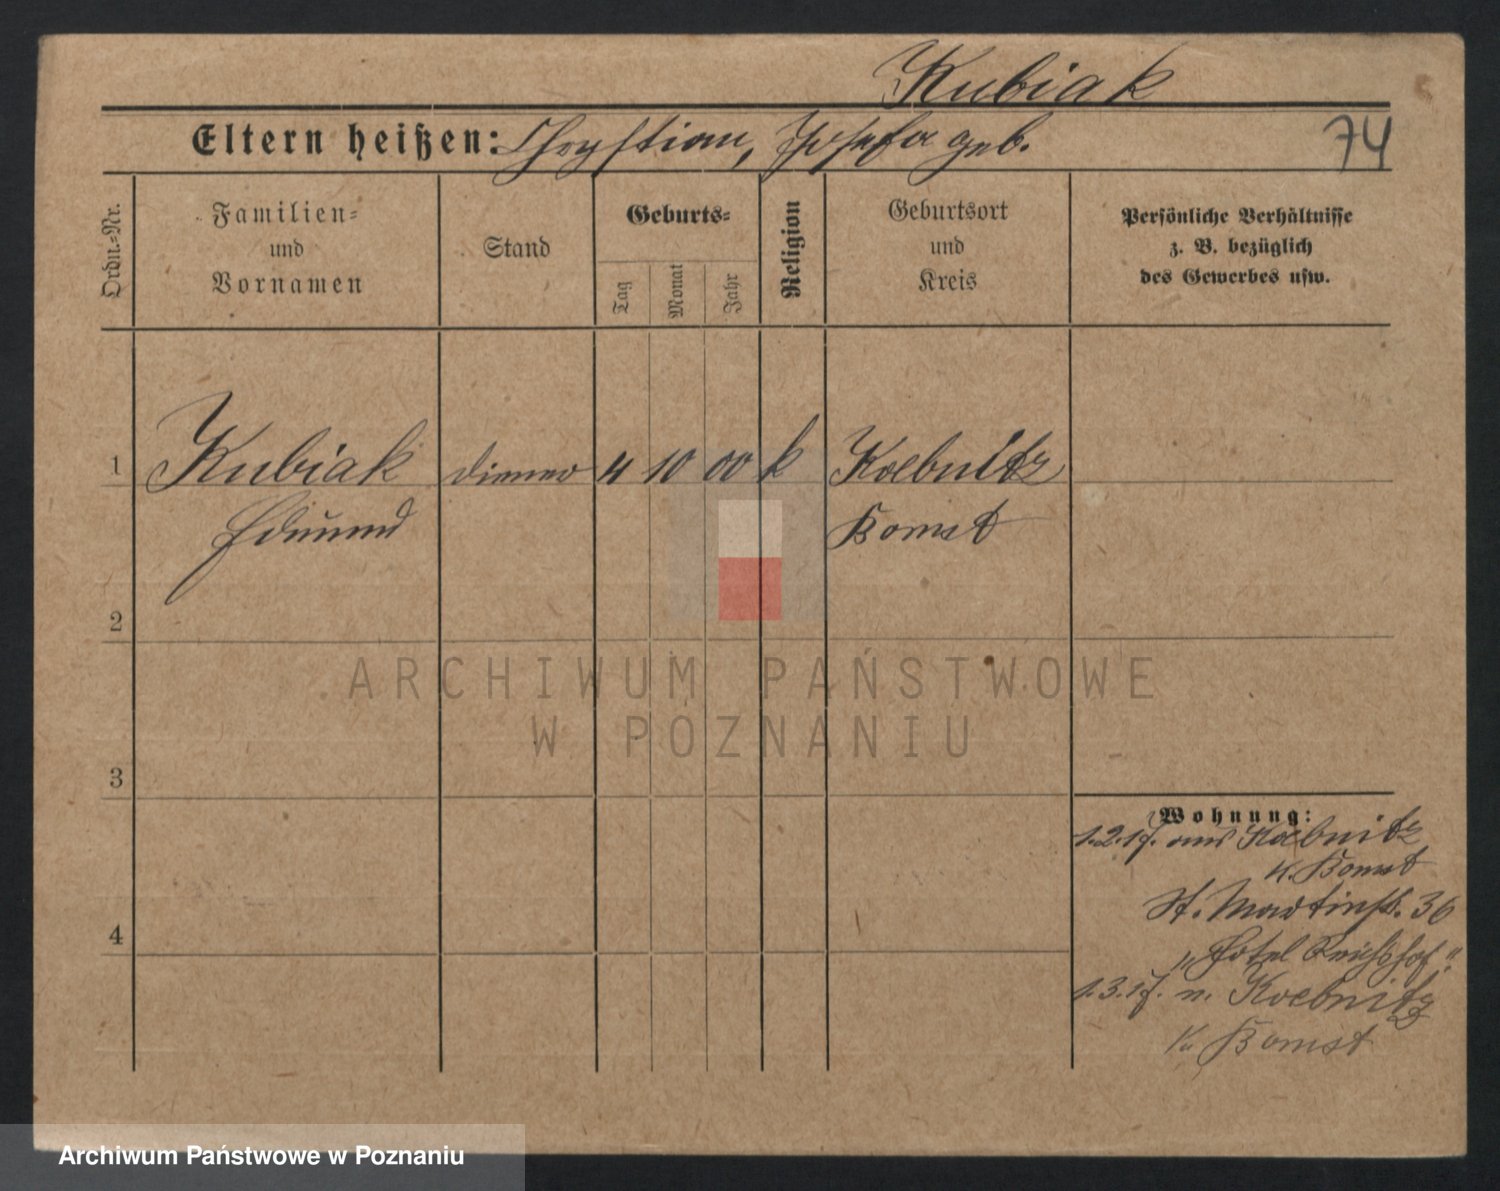 Kubiak
Eltern heißen: Chrystian, Josefa geb.
74
Ordn.=Nr.
Familien=
und
Vornamen
Stand
Geburts=
Tag
Monat
Jahr
Religion
Geburtsort
und
Kreis
Persönliche Verhältnisse
z. B. bezüglich
des Gewerbes usw.
1 Kubiak Diener 4 10 00 k Koebnitz
Edmund Bomst
2
3
4
Wohnung:
1.2.17. aus Koebnitz
K. Bomst
St. Martinstr. 36
"Hotel Reichshof"
1.3.17. n. Koebnitz
K. Bomst
ARCHIWUM PAŃSTWOWE
W POZNANIU
Archiwum Państwowe w Poznaniu